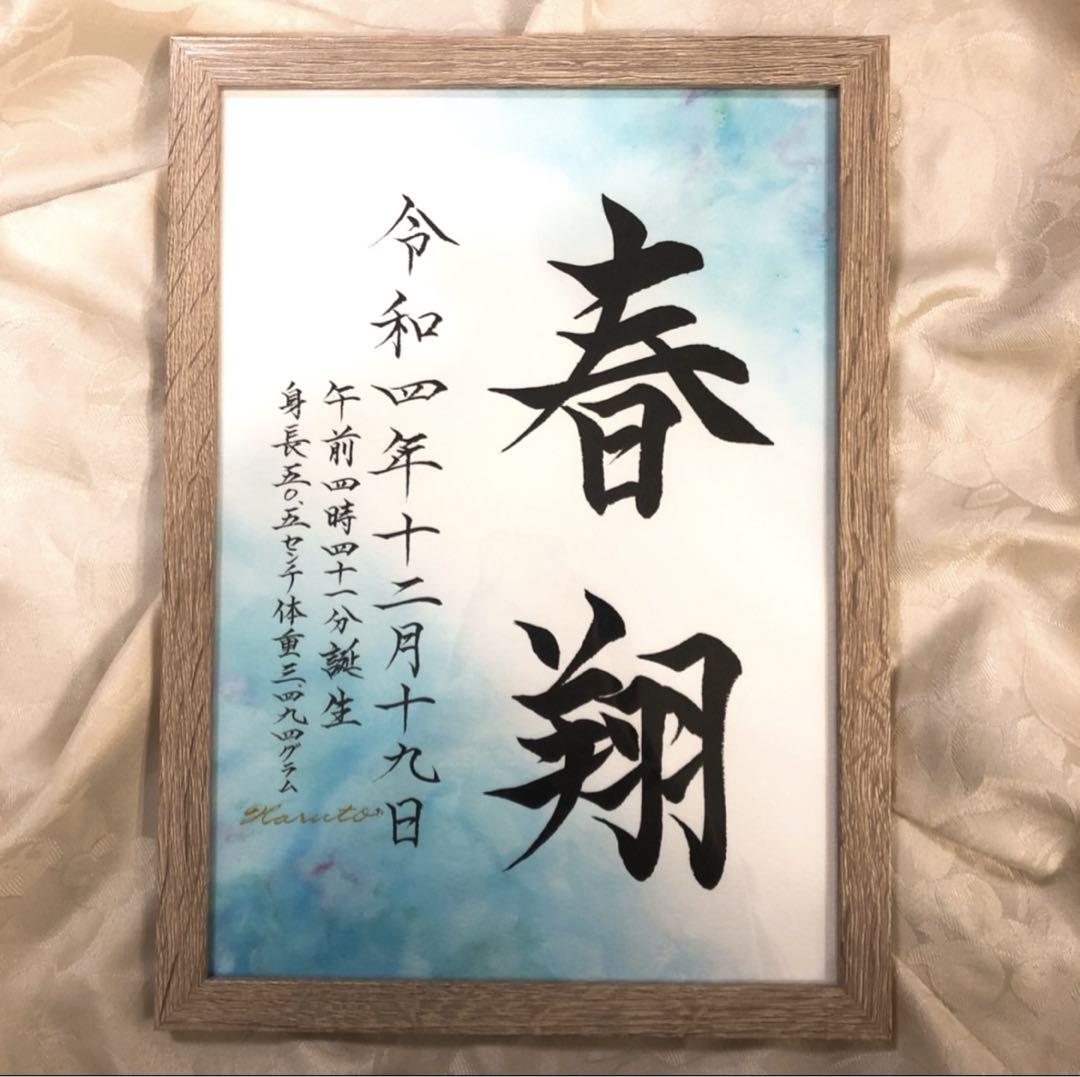 春翔
令和四年十二月十九日
午前四時四十一分誕生
身長五〇.五センチ体重三、四九四グラム
Haruto